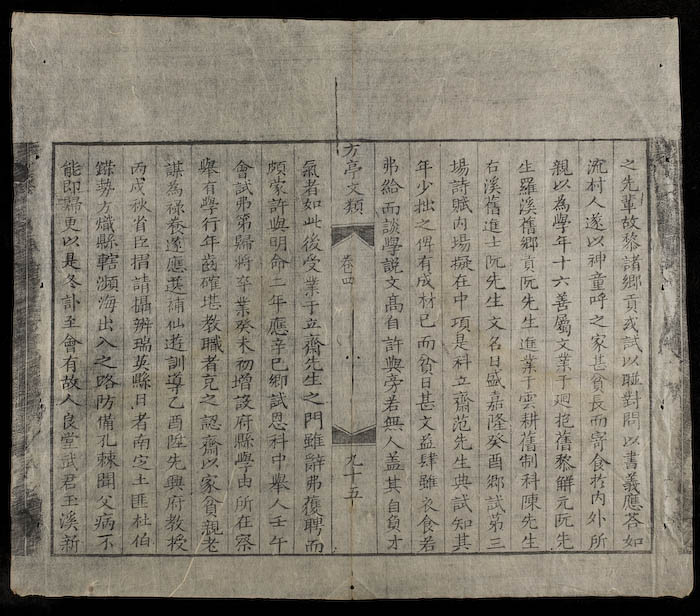 之先輩故黎諸鄉貢或試以聯對問以書義應荅如
流村人遂以神童呼之家甚貧長而寄食於内外所
親以為學年十六善屬文業于廻抱舊黎解元阮先
生羅溪舊鄉貢阮先生進業于雲耕舊制科陳先生
右溪舊進士阮先生文名日盛嘉隆癸酉鄉試第三
場詩賦内場擬在中項是科立齋范先生典試知其
年少拙之俾有成材已而貧日甚文益肆雖衣食若
弗給而談學說文高自許與旁若無人盖其自負才
方亭文類
卷四
九十五
氣者如此後受業于立齋先生之門雖辭弗獲聘而
頗蒙許與明命二年應辛巳鄉試恩科中舉人壬午
會試弗第歸將卒業癸未初增設府縣學由所在察
舉有學行年齒確堪教職者克之認齋以家貧親老
謀為祿養遂應選補仙遊訓導乙酉陞先興府教授
丙戌秋省臣摺請攝辦瑞英縣日者南定土匪杜伯
鐷勢方熾縣轄瀕海出入之路防備孔棘聞父病不
能即歸更以是冬訃至會有故人良堂武君玉溪新